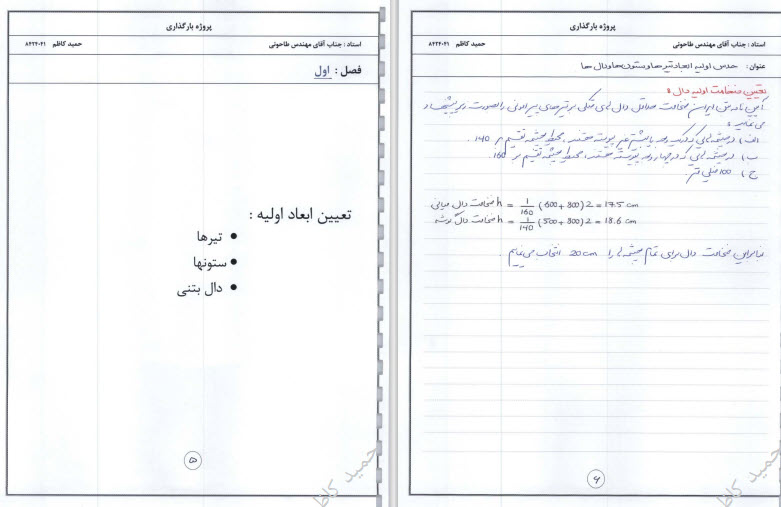 پروژه بارگذاری
استاد : جناب آقای مهندس طاحونی
حمید کاظم ۸۴۲۴۰۴۱
فصل : اول
تعیین ابعاد اولیه :
• تیرها
• ستونها
• دال بتنی
۵
حمید کاظم
پروژه بارگذاری
استاد : جناب آقای مهندس طاحونی
حمید کاظم ۸۴۲۴۰۴۱
عنوان : حدس اولیه ابعاد تیرها و ستون ها و دال ها
تعیین ضخامت اولیه دال :
آیین نامه بتن ایران ضخامت حداقل دال های متکی بر تیرهای پیرامونی را بصورت زیر پیشنهاد
می نماید :
الف) در چشمه هایی که در یک لبه یا بیشتر غیر پیوسته هستند ، محیط چشمه تقسیم بر 140 .
ب) در چشمه هایی که در چهار لبه پیوسته هستند، محیط چشمه تقسیم بر 160 .
ج) 100 میلی متر .
ضخامت دال میانی h = 1/160 (600 + 800) 2 = 17.5 cm
ضخامت دال گوشه h = 1/140 (500 + 800) 2 = 18.6 cm
بنابراین ضخامت دال برای تمام چشمه ها را 20 cm انتخاب می نماییم .
۶
حمید کاظم